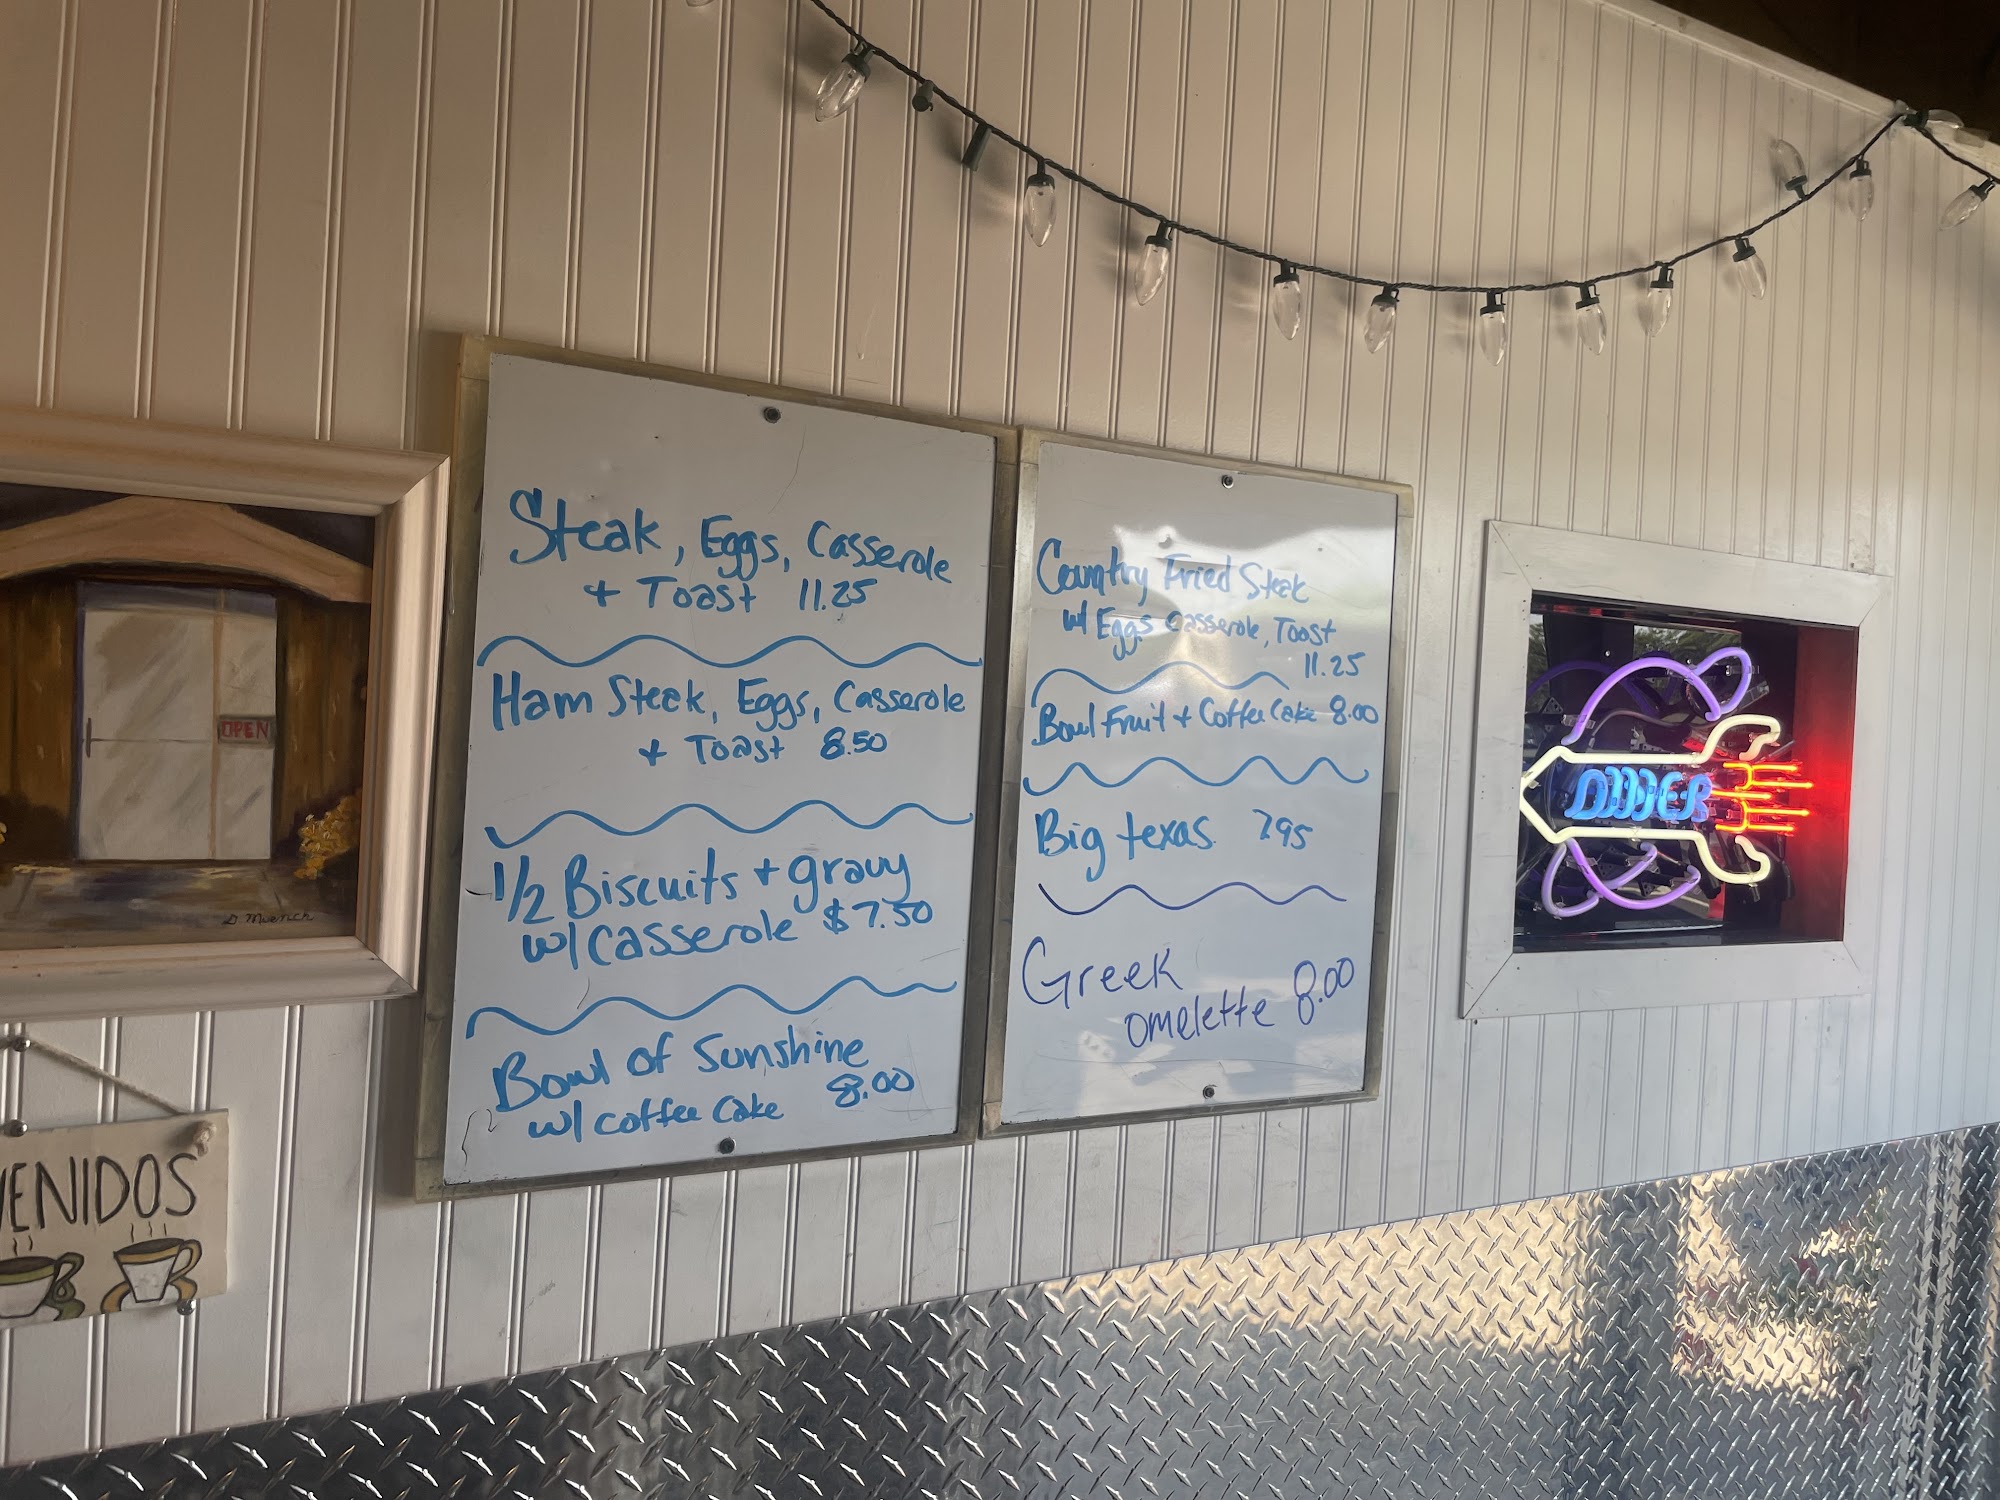 Steak, Eggs, Casserole
+ Toast 11.25
Ham Steak, Eggs, Casserole
+ Toast 8.50
1/2 Biscuits + gravy
w/ Casserole $7.50
Bowl of Sunshine
w/ Coffee Cake 8.00
Country Fried Steak
w/ Eggs Casserole, Toast
11.25
Bowl Fruit + Coffee Cake 8.00
Big texas 7.95
Greek
omelette 8.00
DINER
OPEN
D. Muench
VENIDOS